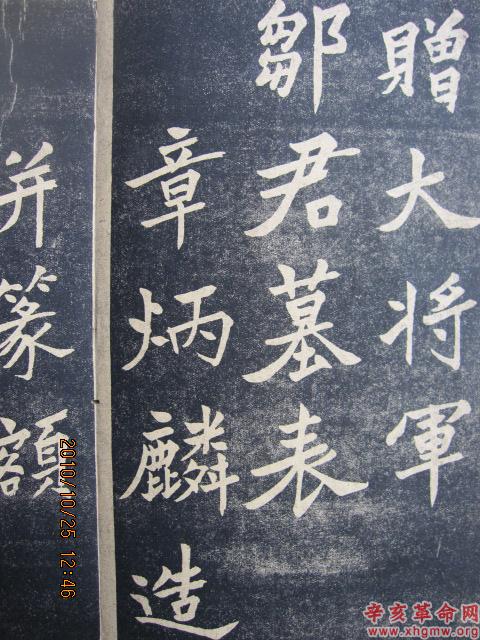 贈大将軍
鄒君墓表
章炳麟造
并篆額
2010/10/25 12:46
辛亥革命网
www.xhgmw.org